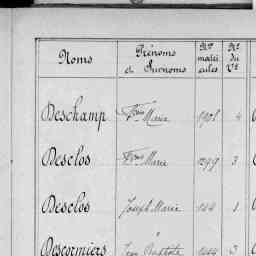 Noms Prénoms et Surnoms Nos matri cules No du Vol
Deschamp Fcois Marie 1901 4
Desclos Fcois Marie 1299 3
Desclos Joseph Marie 144 1
Descormiers Jean Baptiste 1444 3